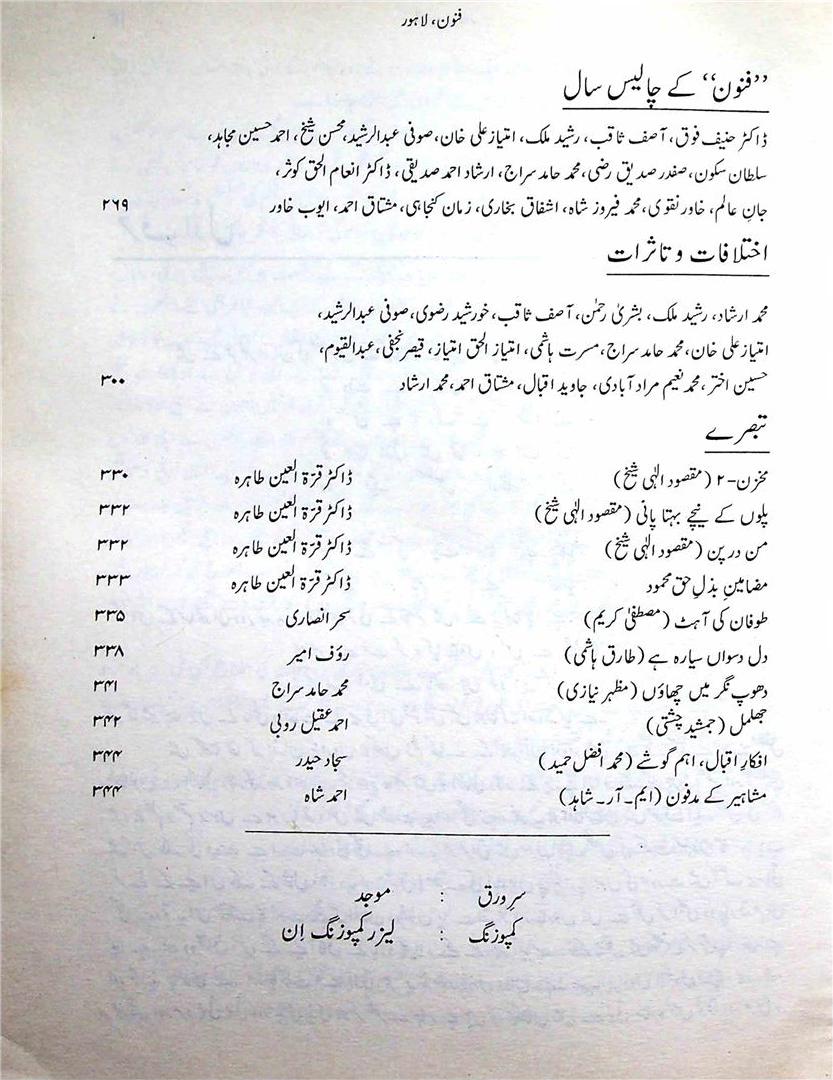 فنون، لاہور
’’فنون‘‘ کے چالیس سال
ڈاکٹر حنیف فوق، آصف ثاقب، رشید ملک، امتیاز علی خان، صوفی عبدالرشید، محسن شیخ، احمد حسین مجاہد،
سلطان سکون، صفدر صدیق رضی، محمد حامد سراج، ارشاد احمد صدیقی، ڈاکٹر انعام الحق کوثر،
جانِ عالم، خاور نقوی، محمد فیروز شاہ، اشفاق بخاری، زمان کنجاہی، مشتاق احمد، ایوب خاور ۲۶۹
اختلافات و تاثرات
محمد ارشاد، رشید ملک، بشریٰ رحمٰن، آصف ثاقب، خورشید رضوی، صوفی عبدالرشید،
امتیاز علی خان، محمد حامد سراج، مسرت ہاشمی، امتیاز الحق امتیاز، قیصر نجفی، عبدالقیوم،
حسین اختر، محمد نعیم مراد آبادی، جاوید اقبال، مشتاق احمد، محمد ارشاد ۳۰۰
تبصرے
مخزن-۲ (مقصود الٰہی شیخ) ڈاکٹر قرۃ العین طاہرہ ۳۳۰
پلوں کے نیچے بہتا پانی (مقصود الٰہی شیخ) ڈاکٹر قرۃ العین طاہرہ ۳۳۲
من درپن (مقصود الٰہی شیخ) ڈاکٹر قرۃ العین طاہرہ ۳۳۲
مضامینِ بذلِ حق محمود ڈاکٹر قرۃ العین طاہرہ ۳۳۳
طوفان کی آہٹ (مصطفیٰ کریم) سحر انصاری ۳۳۵
دل دسواں سیارہ ہے (طارق ہاشمی) رؤف امیر ۳۳۸
دھوپ نگر میں چھاؤں (مظہر نیازی) محمد حامد سراج ۳۴۱
جھلمل (جمشید چشتی) احمد عقیل روبی ۳۴۲
افکارِ اقبال، اہم گوشے (محمد افضل حمید) سجاد حیدر ۳۴۴
مشاہیر کے مدفون (ایم۔آر۔شاہد) احمد شاہ ۳۴۴
سرِورق : موجد
کمپوزنگ : لیزر کمپوزنگ اِن